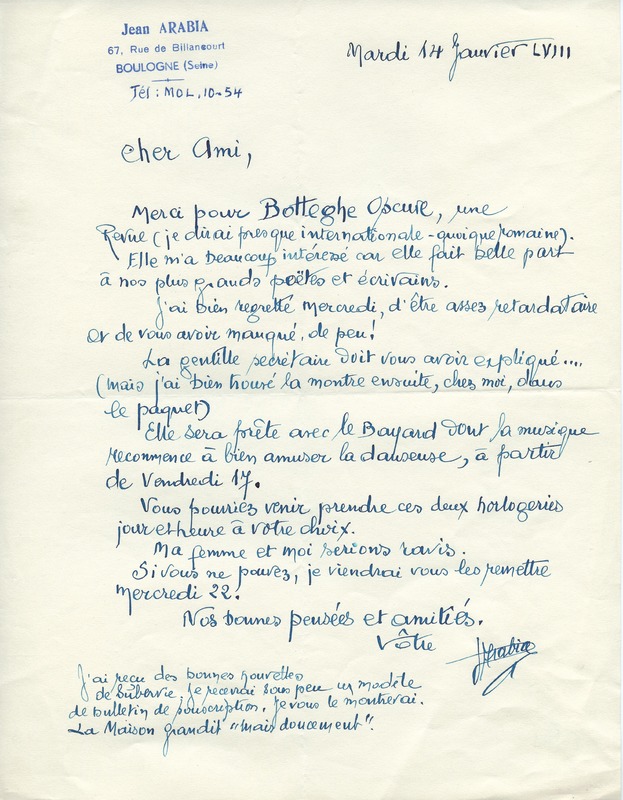 Jean ARABIA
67, Rue de Billancourt
BOULOGNE (Seine)
Tél : MOL, 10-54
Mardi 14 Janvier LVIII
Cher Ami,
Merci pour Botteghe Oscure, une
Revue (je dirai presque internationale - quoique romaine).
Elle m'a beaucoup intéressé car elle fait belle part
à nos plus grands poëtes et écrivains.
J'ai bien regretté Mercredi, d'être assez retardataire
et de vous avoir manqué, de peu !
La gentille secrétaire doit vous avoir expliqué....
(mais j'ai bien trouvé la montre ensuite, chez moi, dans
le paquet)
Elle sera prête avec le Bayard dont la musique
recommence à bien amuser la danseuse, à partir
de Vendredi 17.
Vous pourriez venir prendre ces deux horlogeries
jour et heure à votre choix.
Ma femme et moi serions ravis.
Si vous ne pouvez, je viendrai vous les remettre
Mercredi 22.
Nos bonnes pensées et amitiés.
Vôtre
JArabia
J'ai reçu des bonnes nouvelles
de Subervie. Je recevrai sous peu un modèle
de bulletin de souscription. Je vous le montrerai.
La Maison grandit "mais doucement".